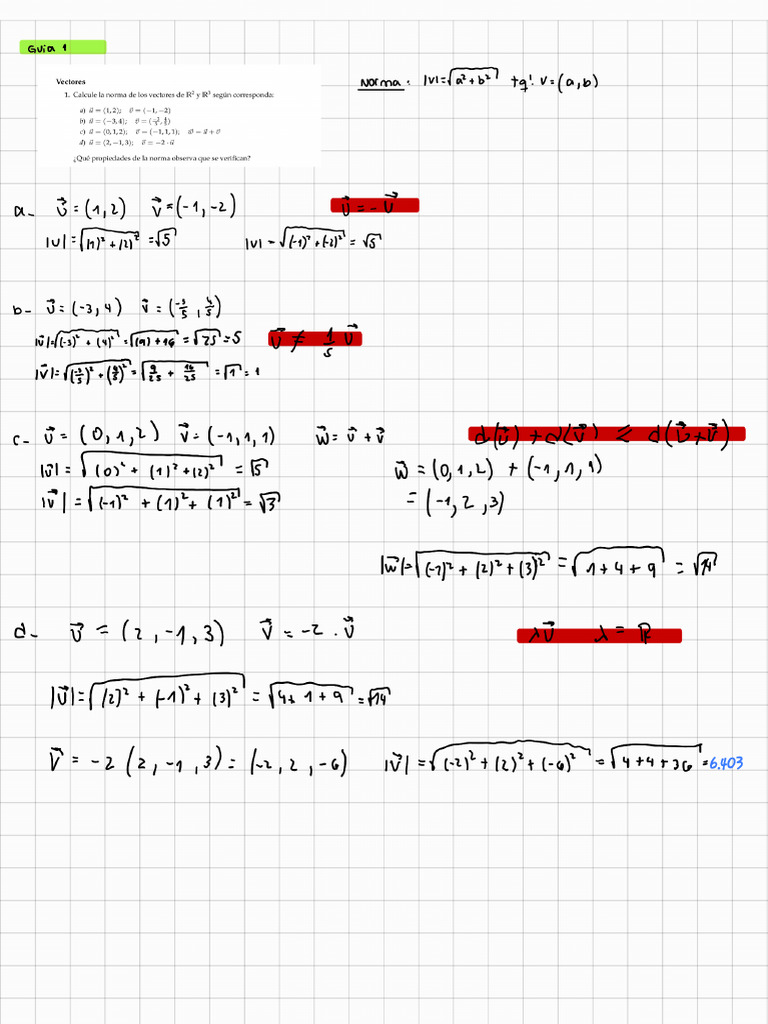 Guia 1
Vectores
1. Calcule la norma de los vectores de ℝ² y ℝ³ según corresponda:
a) u⃗ = (1,2); v⃗ = (−1,−2)
b) u⃗ = (−3,4); v⃗ = (−3/5, 4/5)
c) u⃗ = (0,1,2); v⃗ = (−1,1,1); w⃗ = u⃗ + v⃗
d) u⃗ = (2,−1,3); v⃗ = −2·u⃗
¿Qué propiedades de la norma observa que se verifican?
Norma: |V|=√(a²+b²) tq: V=(a,b)
a- u⃗=(1,2) v⃗=(-1,-2) u⃗=-v⃗
|u|=√((1)²+(2)²)=√5 |v|=√((-1)²+(-2)²)=√5
b- u⃗=(-3,4) v⃗=(-3/5,4/5)
|u⃗|=√((-3)²+(4)²)=√((9)+16)=√25=5 v⃗≠1/5 u⃗
|v⃗|=√((-3/5)²+(4/5)²)=√(9/25+16/25)=√1=1
c- u⃗=(0,1,2) v⃗=(-1,1,1) w⃗=u⃗+v⃗ d(u⃗)+d(v⃗)≤d(u⃗+v⃗)
|u⃗|=√((0)²+(1)²+(2)²)=√5 w⃗=(0,1,2)+(-1,1,1)
|v⃗|=√((-1)²+(1)²+(1)²)=√3 =(-1,2,3)
|w⃗|=√((-1)²+(2)²+(3)²)=√(1+4+9)=√14
d- u⃗=(2,-1,3) v⃗=-2.u⃗ λu⃗ λ=ℝ
|u⃗|=√((2)²+(-1)²+(3)²)=√(4+1+9)=√14
v⃗=-2(2,-1,3)=(-2,2,-6) |v⃗|=√((-2)²+(2)²+(-6)²)=√(4+4+36)=6.403